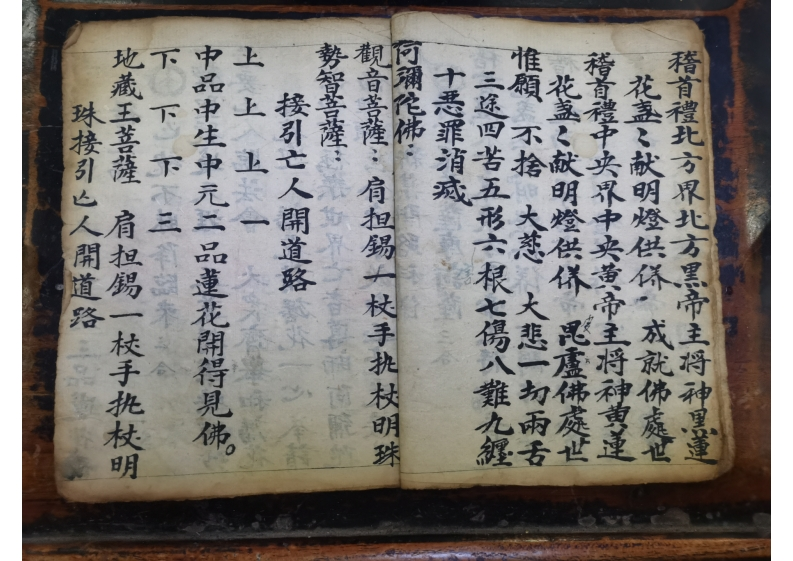 稽首禮北方界北方黑帝主将神黑蓮
花盞〻献明燈供佛 成就佛處世
稽首禮中央界中央黄帝主将神黄蓮
花盞〻献明燈供佛 毘盧佛處世
惟願 不捨 大慈 大悲一切兩舌
三途四苦五形六根七傷八難九纏
十恶罪消滅
阿彌陀佛：
觀音菩薩：肩担錫一杖手执杖明珠
勢智菩薩：
接引亡人開道路
上 上 上 一
中品中生中元二品蓮花開得見佛。
下 下 下 三
地藏王菩薩 肩担錫一杖手执杖明
珠接引亡人開道路